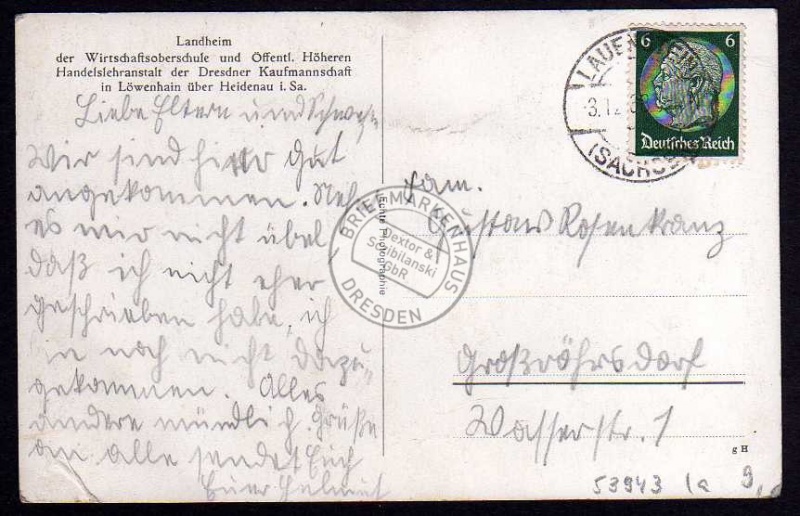 Landheim
der Wirtschaftsoberschule und Öffentl. Höheren
Handelslehranstalt der Dresdner Kaufmannschaft
in Löwenhain über Heidenau i. Sa.
Liebe Eltern und Schwest.
Wir sind hier gut
angekommen. Neh
es mir nicht übel,
daß ich nicht eher
geschrieben habe, ich
bin noch nicht dazu-
gekommen. Alles
andere mündlich. Grüße
an alle sendet Euch
Euer Helmut
Echte Photographie
BRIEFMARKENHAUS
Dextor &
Scibilanski
GbR
DRESDEN
6 6
Deutsches Reich
LAUENSTEIN
3.12.
(SACHSEN)
Fam.
Gustav Rosenkranz
Großröhrsdorf
Wasserstr. 1
g H
53943 1a 9,